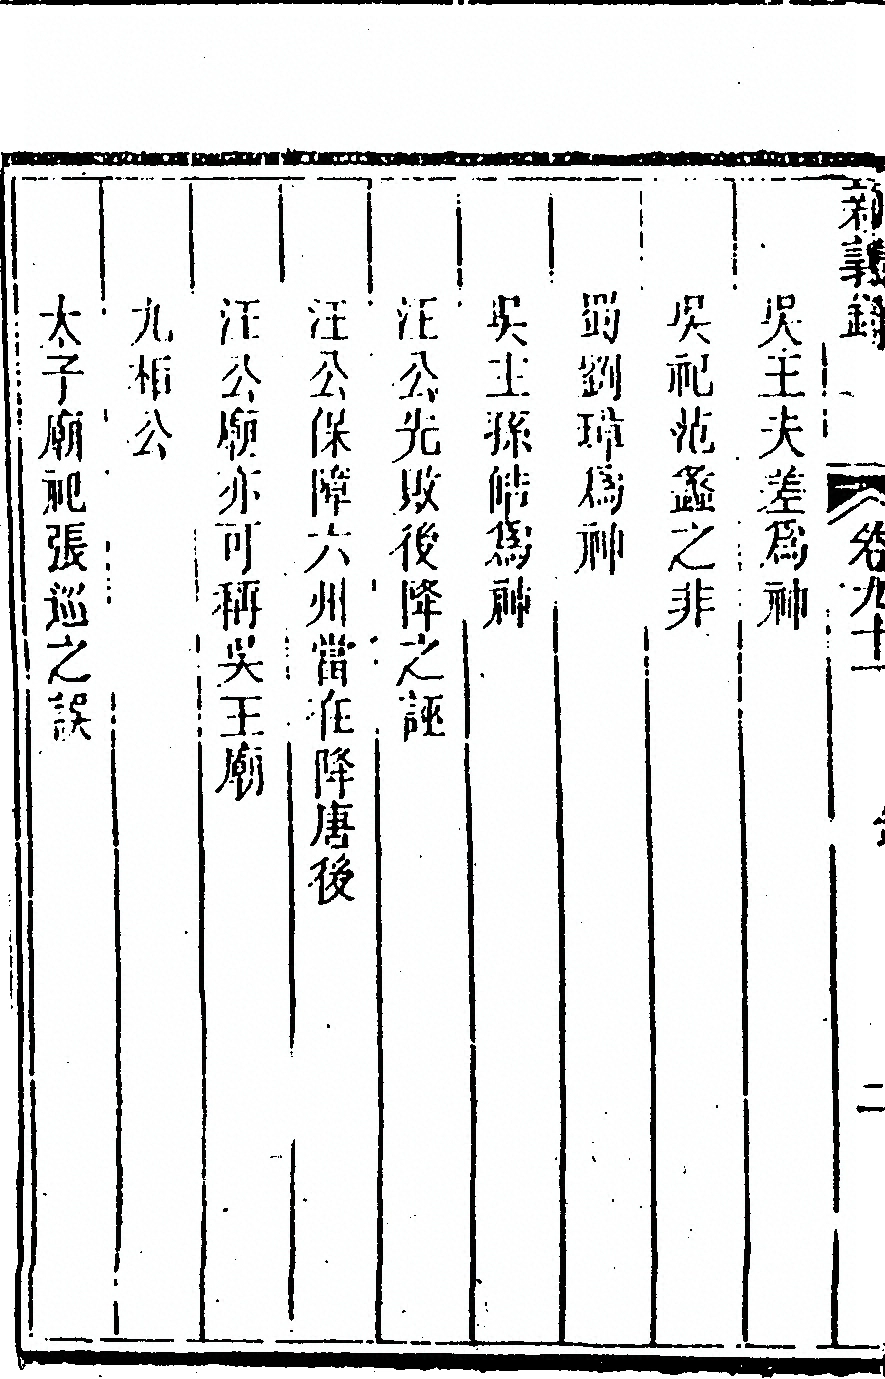 新義錄 卷九十一 二
吳王夫差爲神
吳祀范蠡之非
蜀劉璋爲神
吳主孫皓爲神
汪公先敗後降之誣
汪公保障六州當在降唐後
汪公廟亦可稱吳王廟
九相公
太子廟祀張巡之誤